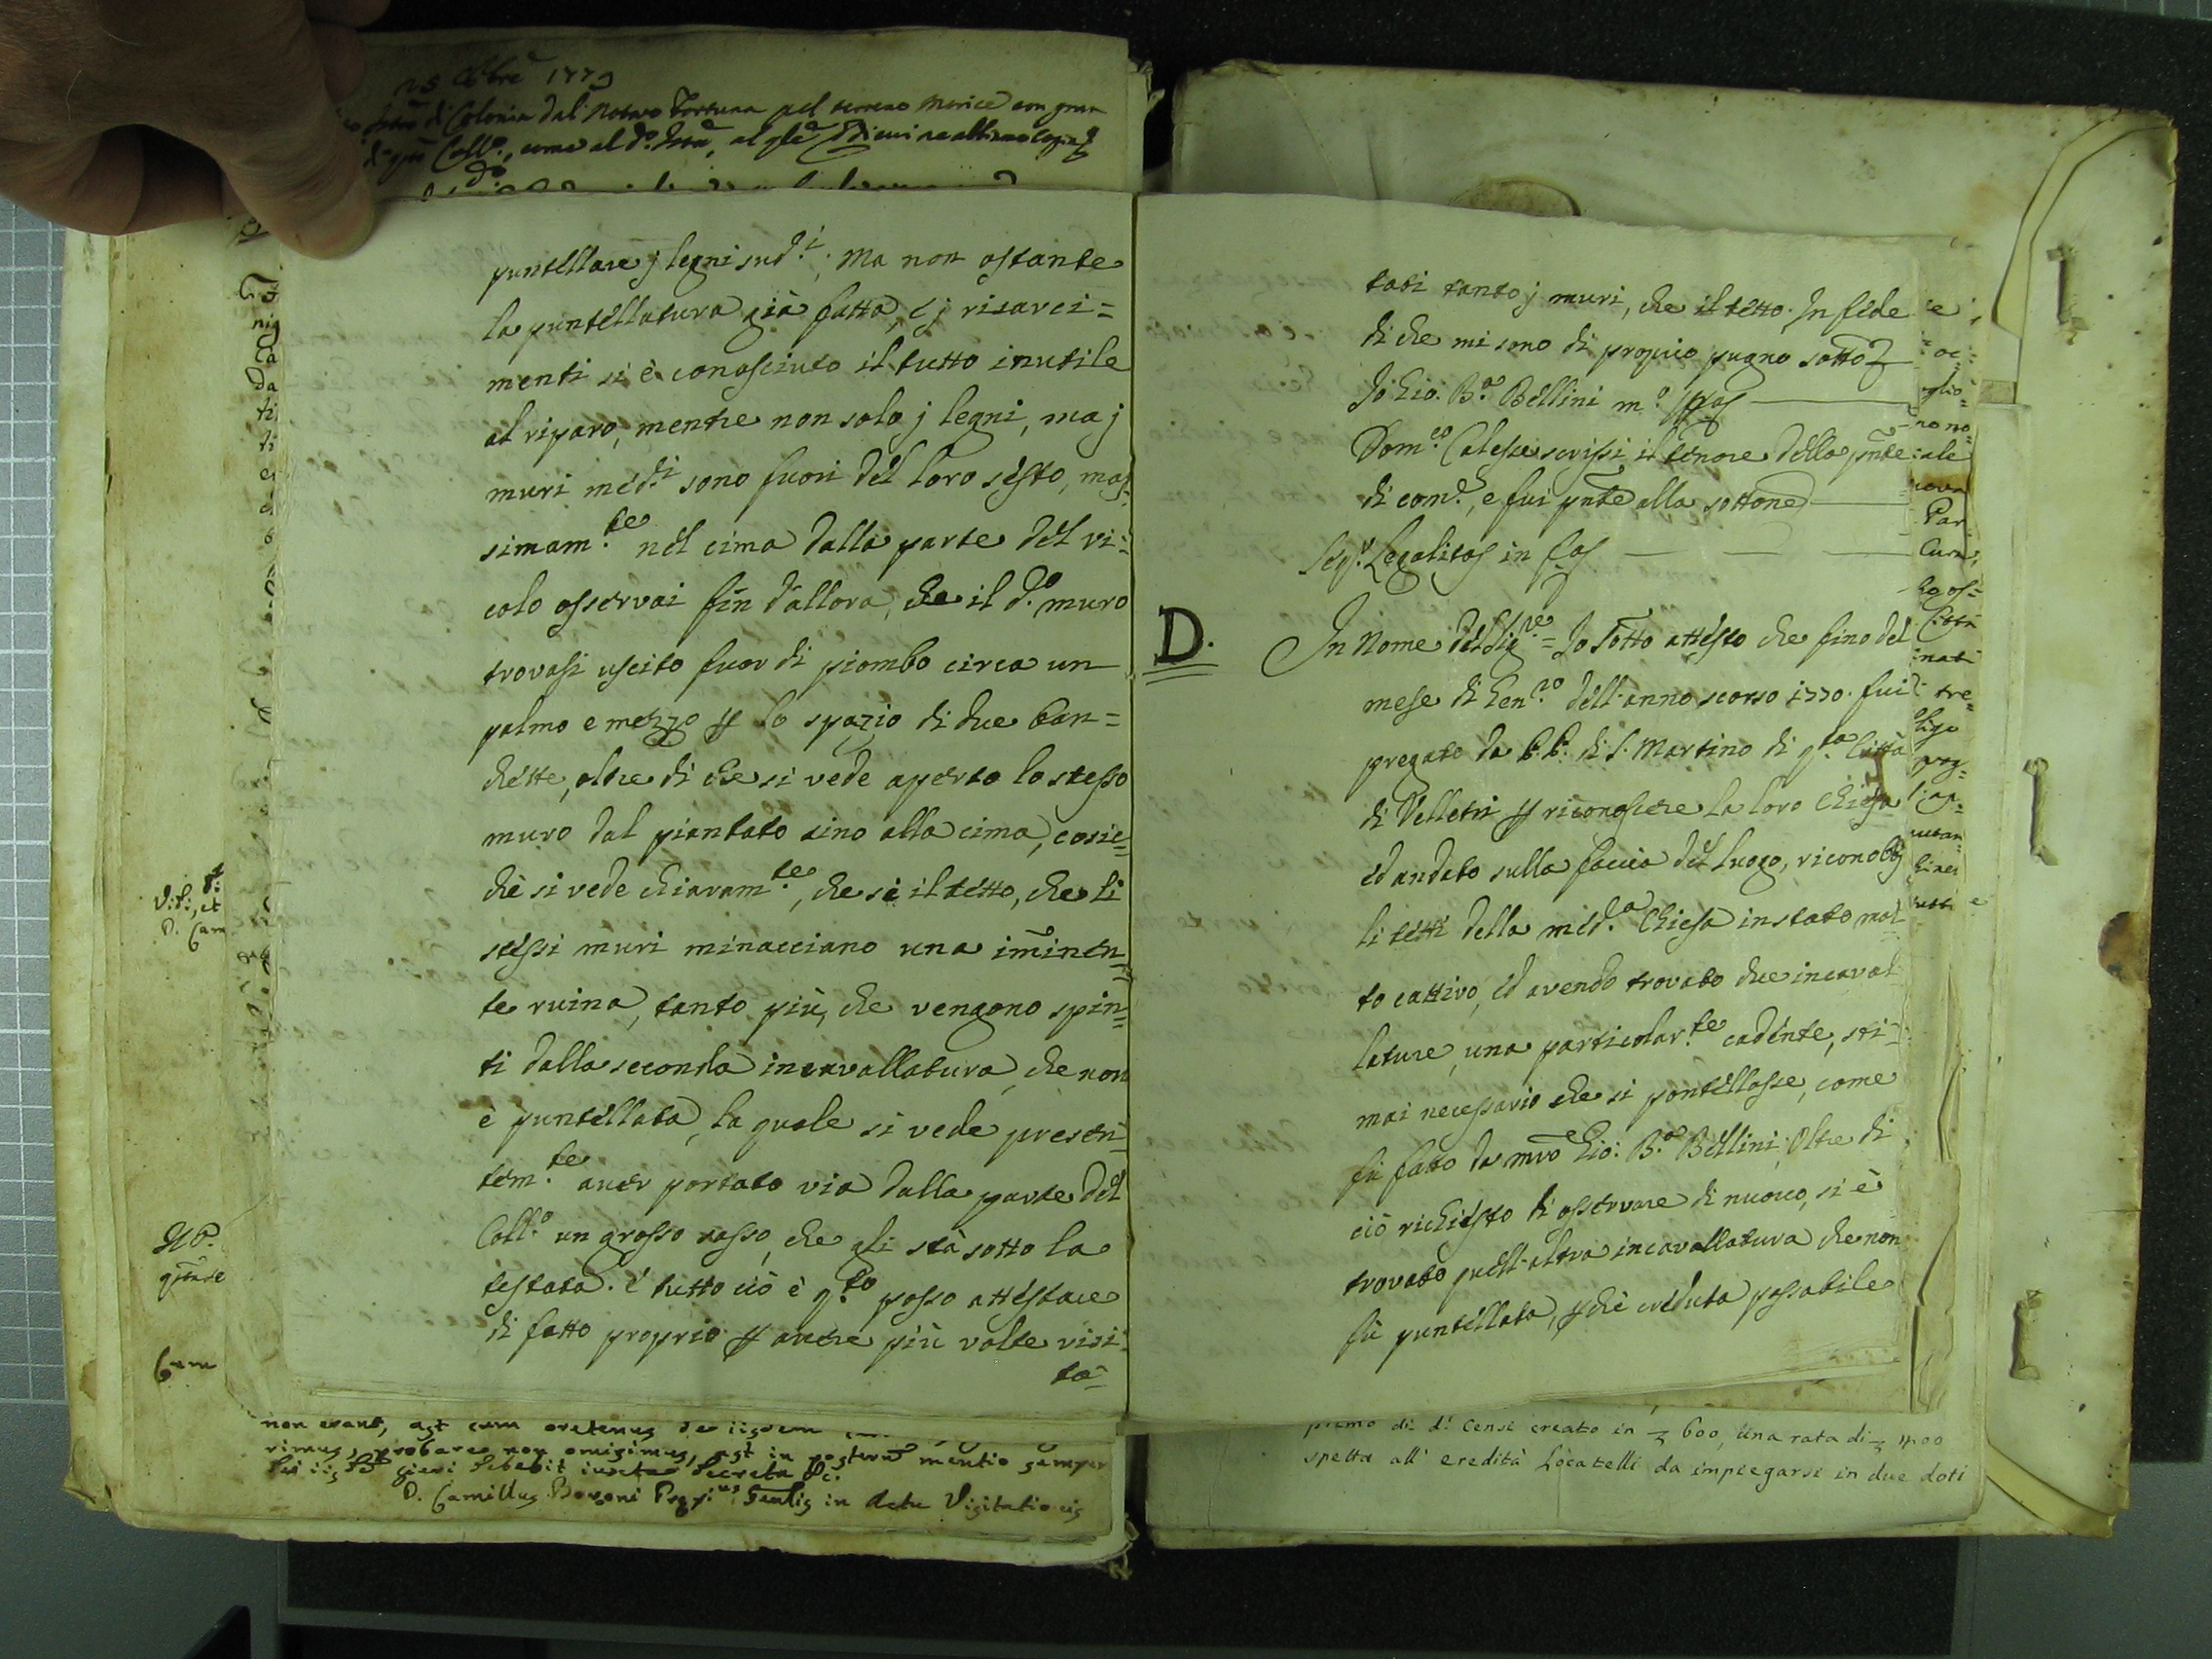 25 Ottbre 1779
di Colonia dal Notaro Fortuna pel terreno Morice con
Collo, come al do al qle di cui ne abbiamo copia
puntellare j legni sudi; Ma non ostante
la puntellatura già fatta, e j risarci=
menti si è conosciuto il tutto inutile
al riparo, mentre non solo j legni, ma j
muri medi sono fuori del loro sesto, mas=
simamte nel cima dalla parte del vi=
colo osservai fin d'allora, che il do muro
trovasi uscito fuor di piombo circa un
palmo e mezzo p lo spazio di due ban=
chette, oltre di che si vede aperto lo stesso
muro dal piantato sino alla cima, cosic=
chè si vede chiaramte, che si il tetto, che li
stessi muri minacciano una iminen=
te ruina, tanto più, che vengono spin=
ti dalla seconda incavallatura, che non
è puntellata, la quale si vede presen=
temte aver portato via dalla parte del
Collo un grosso sasso, che gli stà sotto la
testata. E tutto ciò è qto posso attestare
di fatto proprio p avere più volte visi=
ta=
tati tanto j muri, che il tetto. In fede
di che mi sono di proprio pugno sotto
Io Gio: Bа Bellini mo ppa
Domco Calesse scrissi il tenore della pnte
di come, e fui pnte alla sottone
Seqr Legalitas in fa
D.
In Nome del Sigre = Io Sotto attesto che fino del
mese di Genro dell'anno scorso 1770. fui
pregato da PP. di S. Martino di qta Città
di Velletri p riconoscere la loro Chiesa
ed andato sulla faccia del luogo, riconobbi
li tetti della meda Chiesa in stato mol
to cattivo, ed avendo trovato due incaval
lature, una particolarte cadente, sti=
mai necessario che si pontellasse, come
fù fatto da mro Gio: Ba Bellini; Oltre di
ciò richiesto di osservare di nuovo, si è
trovato quest'altra incavallatura che non
fù puntellata, pchè creduta passabile
Visi, et
D. Cam
NB.
non erant, ast cum oretenus de iisdem
rimus, probare non omisimus, ast in posterum mentio semper
de iis fieri debebit iuxta decreta &c.
D. Camillus Bovoni Praep.us Gnalis in Actu Visitationis
primo di di Censi creato in 600, una rata di 400
spetta all' eredità Locatelli da impiegarsi in due doti